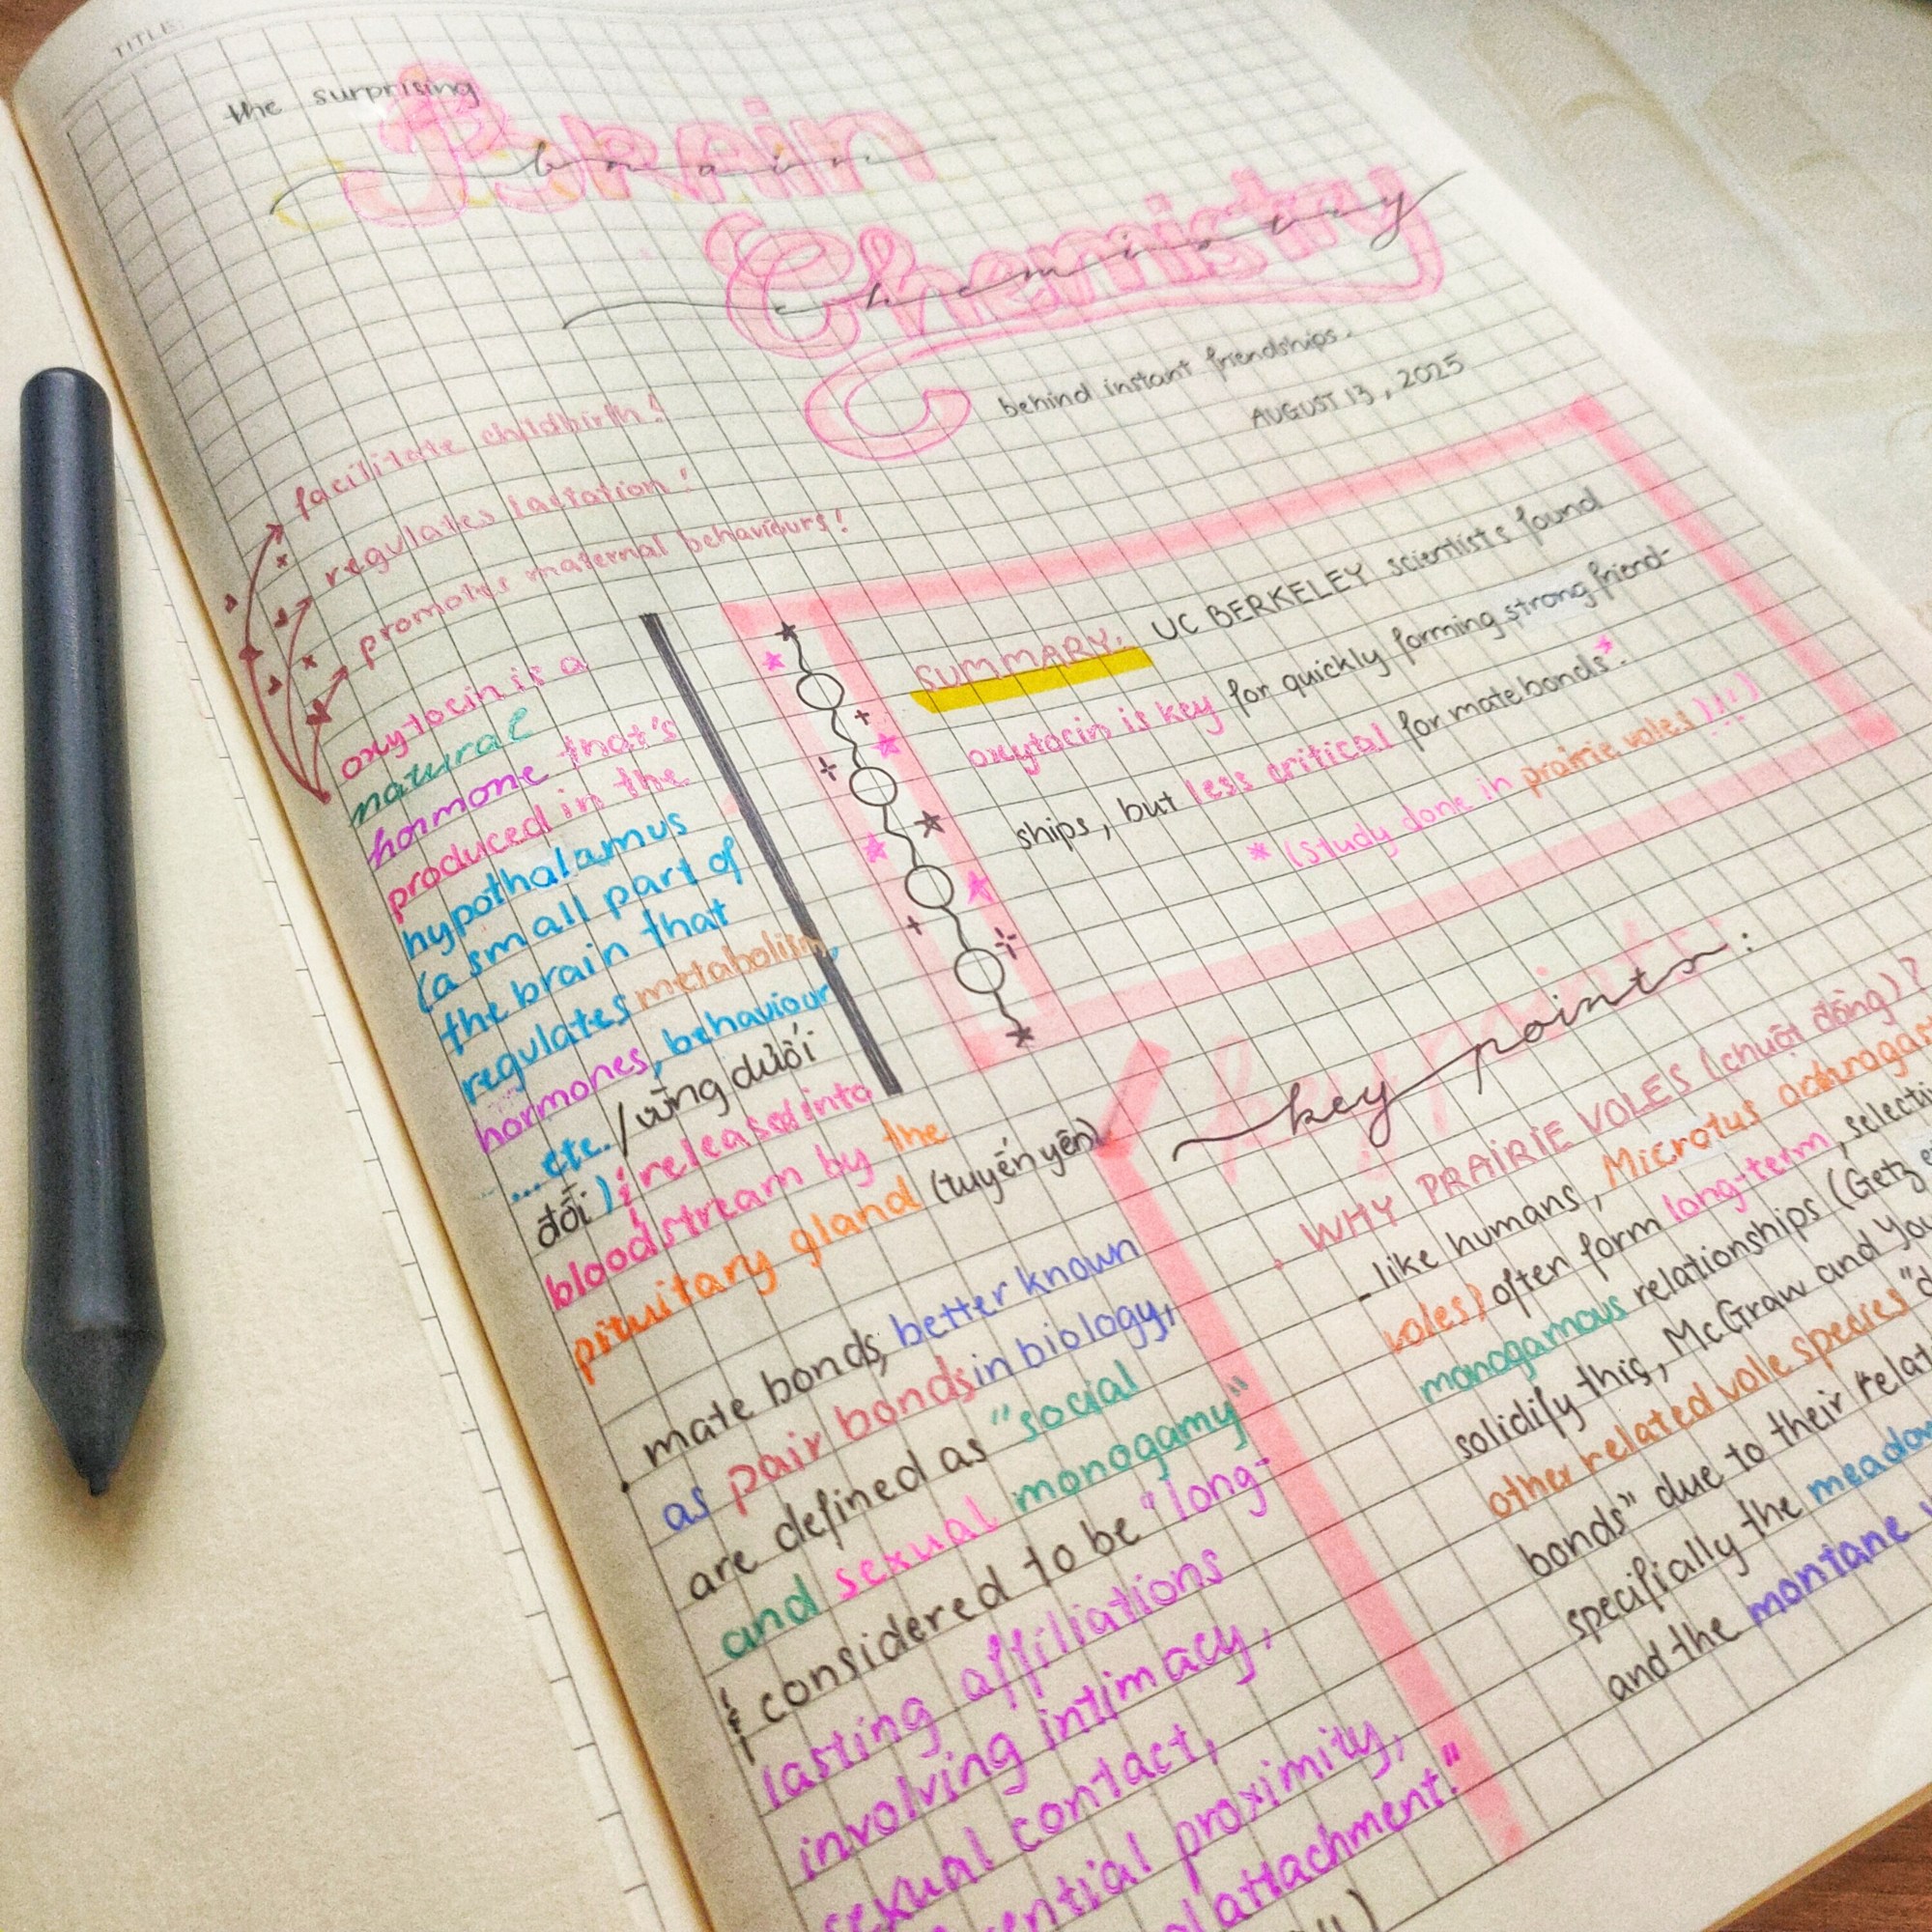 TITLE:
the surprising
Brain
brain
Chemistry
chemistry
behind instant friendships.
AUGUST 13, 2025
facilitate childbirth!
regulates lactation!
promotes maternal behaviours!
oxytocin is a
natural
hormone that's
produced in the
hypothalamus
(a small part of
the brain that
regulates metabolism,
hormones, behaviour
...etc. / vùng dưới
đồi) & released into
bloodstream by the
pituitary gland (tuyến yên)
mate bonds, better known
as pair bonds in biology,
are defined as "social
and sexual monogamy"
& considered to be "long-
lasting affiliations
involving intimacy,
sexual contact,
proximity,
attachment."
SUMMARY: UC BERKELEY scientists found
oxytocin is key for quickly forming strong friend-
ships, but less critical for mate bonds*.
* (study done in prairie voles)!!!)
key points
key points:
WHY PRAIRIE VOLES (chuột đồng)?
- like humans, Microtus
voles) often form long-term,
monogamous relationships (Getz
solidify this, McGraw and
other related vole species
bonds" due to their
specifially the
and the montane